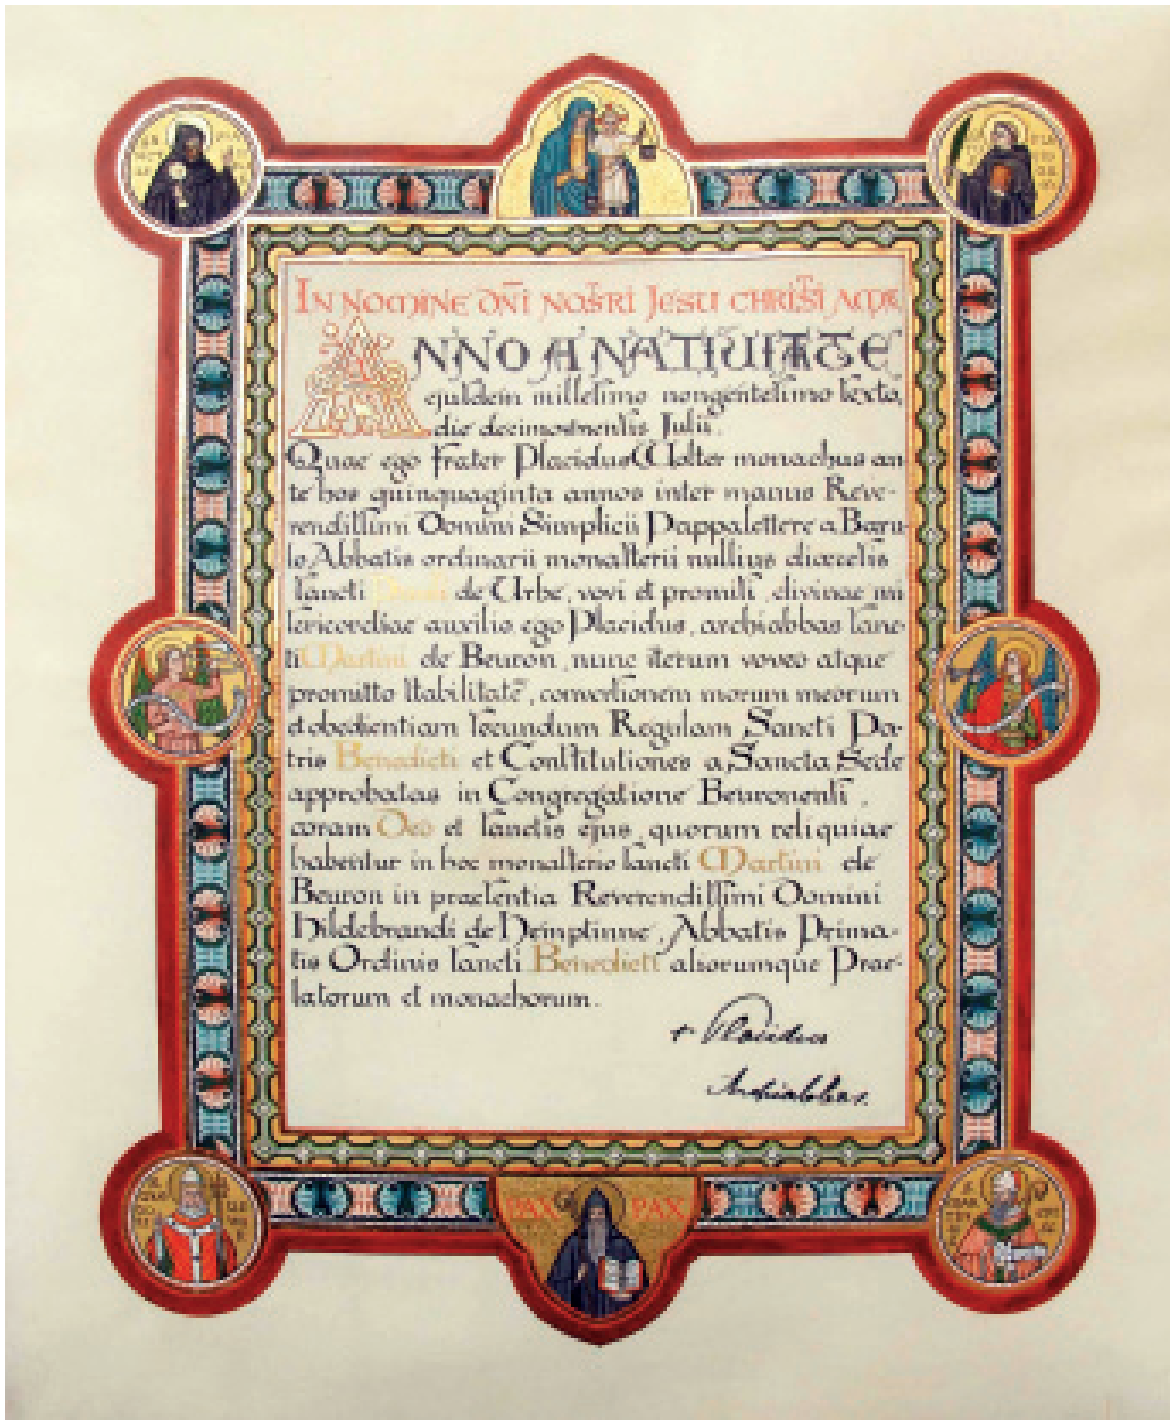 IN NOMINE DNI NOSTRI JESU CHRISTI AMEN
ANNO A NATIUITATE
ejusdem millesimo nongentesimo sexto,
die decimo mensis Julii.
Quae ego frater Placidus Wolter monachus an-
te hos quinquaginta annos inter manus Reve-
rendissimi Domini Simplicii Pappalettere a Baru-
lo Abbatis ordinarii monasterii nullius dioecesis
sancti Pauli de Urbe, vovi et promisi, divinae mi
sericordiae auxilio ego Placidus, archiabbas sanc-
ti Martini de Beuron, nunc iterum voveo atque
promitto stabilitatē, conversionem morum meorum
et obedientiam secundum Regulam Sancti Pa-
tris Benedicti et Constitutiones a Sancta Sede
approbatas in Congregatione Beuronensi,
coram Deo et sanctis ejus, quorum reliquiae
habentur in hoc monasterio sancti Martini de
Beuron in praesentia Reverendissimi Domini
Hildebrandi de Hemptinne, Abbatis Prima-
tis Ordinis sancti Benedicti aliorumque Prae-
latorum et monachorum.
+ Placidus
Archiabbas.
PAX PAX